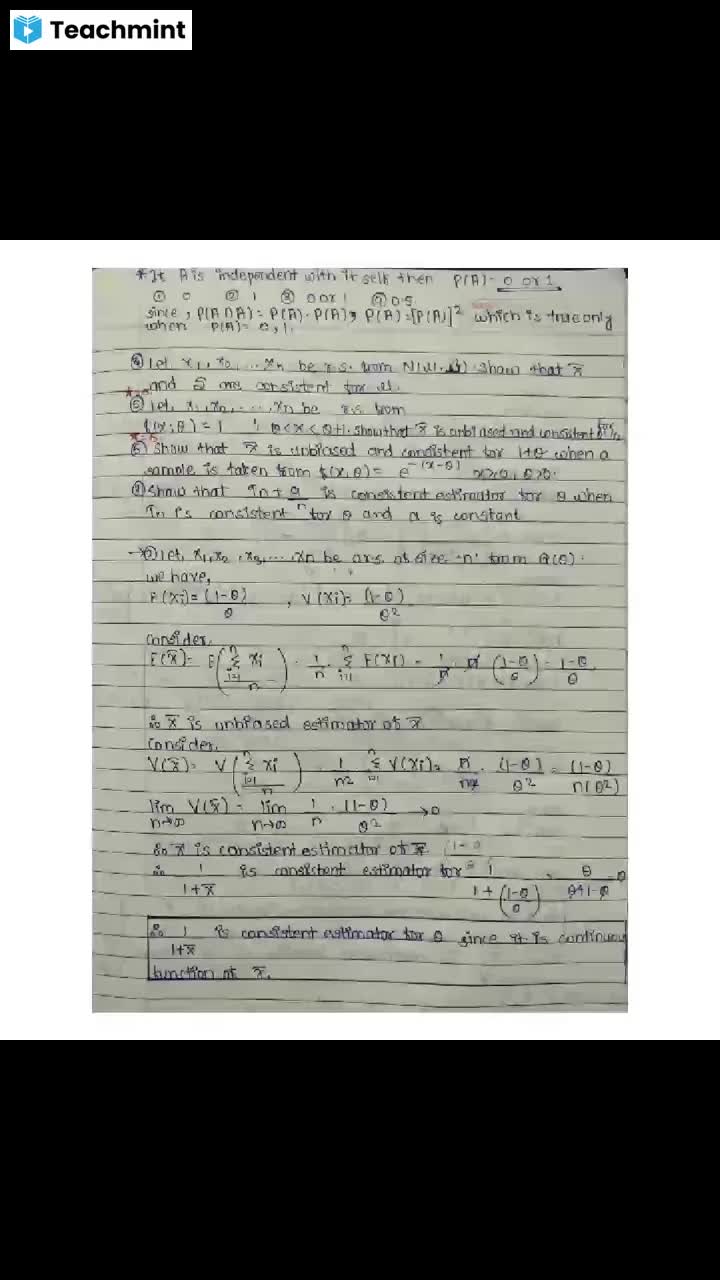 Teachmint
*If A is independent with it self then P(A)= 0 or 1
① 0 ② 1 ③ 0 or 1 ④ 0.5
since, P(A∩A) = P(A)·P(A), P(A)=[P(A)]² which is true only
when P(A)= 0, 1.
④ Let x₁, x₂, ... xn be r.s. from show that x̄
and are consistent for μ.
⑤ Let, x₁, x₂, ..., xn be r.s from
f(x; θ) = 1 ; θ < x < θ+1. show that x̄ is unbiased and consistent
⑥ Show that x̄ is unbiased and consistent for 1+θ when a
sample is taken from f(x, θ) = e^-(x-θ)
⑦ Show that Tn + a/n is consistent estimator for θ when
Tn is consistent for θ and a is constant
let, x₁, x₂, x₃, ..., xn be a r.s. of size 'n' from G(θ).
we have,
E(Xi) = (1-θ)/θ , V(Xi) = (1-θ)/θ²
Consider,
E(x̄) = E(Σ(i=1 to n) xi / n) = 1/n · Σ(i=1 to n) E(Xi) = 1/n · n (1-θ)/θ = 1-θ/θ
∴ x̄ is unbiased estimator of x̄
Consider,
V(x̄) = V(Σ(i=1 to n) xi / n) = 1/n² Σ(i=1 to n) V(Xi) = n/n² · (1-θ)/θ² = (1-θ)/n(θ²)
lim n→∞ V(x̄) = lim n→∞ 1/n · (1-θ)/θ² → 0
∴ x̄ is consistent estimator of x̄
∴ 1/1+x̄ is consistent estimator for = 1/1+((1-θ)/θ) = θ/θ+1-θ = θ
∴ 1/1+x̄ is consistent estimator for θ since it is continuou
function of x̄.